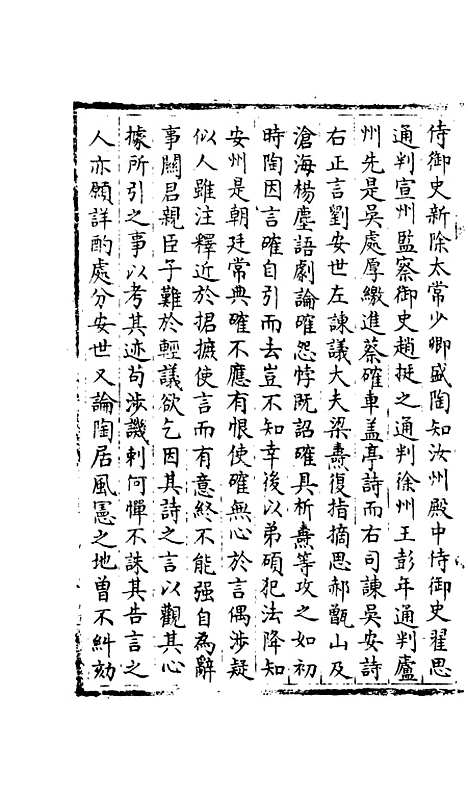 侍御史新除太常少卿盛陶知汝州殿中侍御史翟思
通判宣州監察御史趙挺之通判徐州王彭年通判廬
州先是吳處厚繳進蔡確車盖亭詩而右司諫吳安詩
右正言劉安世左諫議大夫梁燾復指摘思郝甑山及
滄海楊塵語劇論確怨悖既詔確具析燾等攻之如初
時陶因言確自引而去豈不知幸後以弟碩犯法降知
安州是朝廷常典確不應有恨使確無心於言偶涉疑
似人雖注釋近於捃摭使言而有意終不能强自為辭
事關君親臣子難於輕議欲乞因其詩之言以觀其心
據所引之事以考其迹茍涉譏刺何憚不誅其告言之
人亦願詳酌處分安世又論陶居風憲之地曾不糾劾